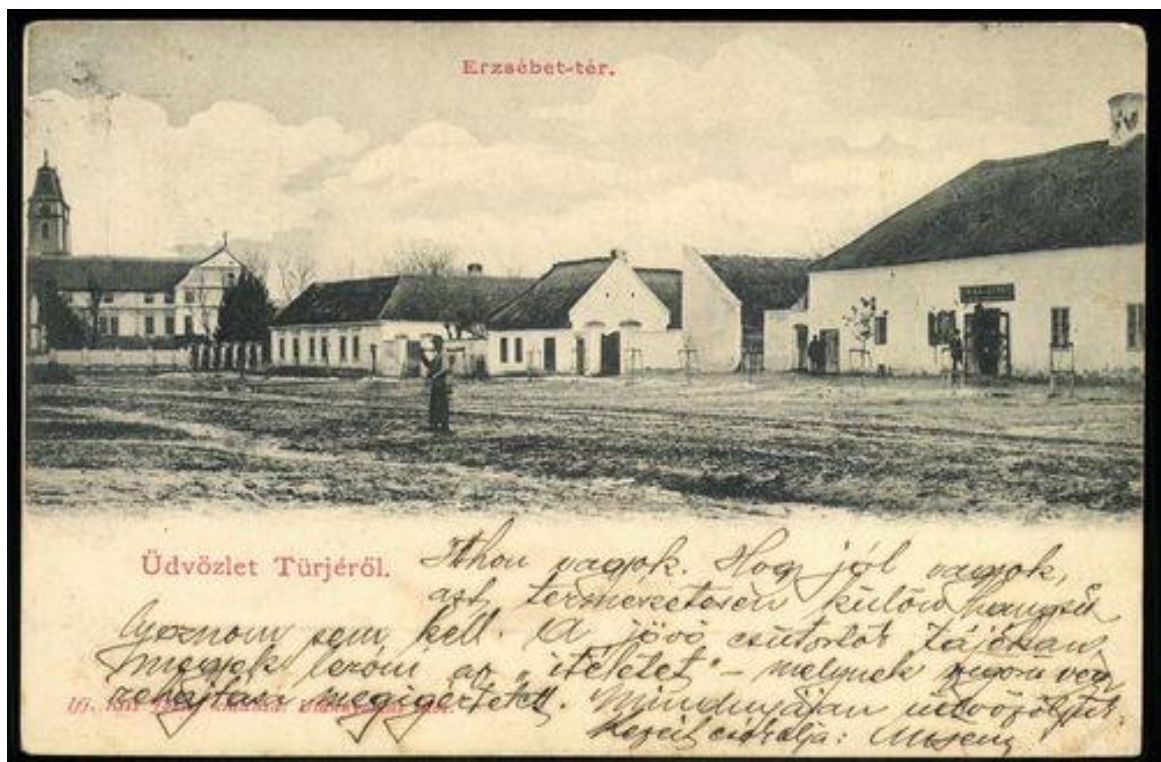 Erzsébet-tér.
Üdvözlet Türjéről.
Itthon vagyok. Hogy jól vagyok,
azt természetesen külön hangsú
lyoznom sem kell. A jövő csütörtök tájékán
megyek leróni az „ítéletet" – melynek szigorú vég
rehajtását megigérték. Mindnyájan üdvözöljük.
Kezeit csókolja: